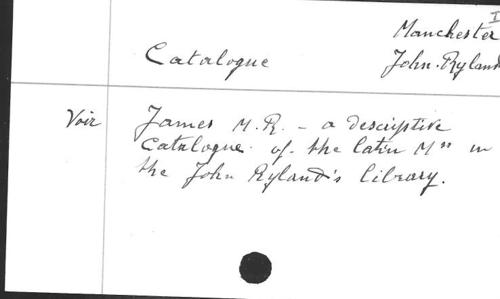 I
Manchester
Catalogue John. Ryland
Voir James M.R. - a descriptive
Catalogue of the latin Mss in
the John Ryland's library.